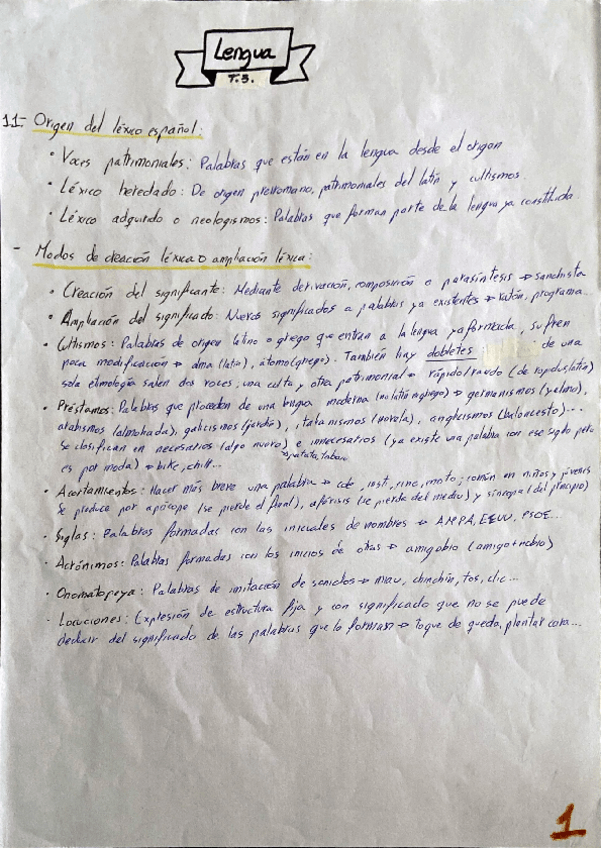 Lengua
T.3.
1.1- Origen del léxico español:
• Voces patrimoniales: Palabras que están en la lengua desde el origen
• Léxico heredado: De origen prerromano, patrimoniales del latín y cultismos.
• Léxico adquirido o neologismos: Palabras que forman parte de la lengua ya constituida.
- Modos de creación léxica o ampliación léxica:
• Creación del significante: Mediante derivación, composición o parasíntesis → sanchista
• Ampliación del significado: Nuevos significados a palabras ya existentes → ratón, programa...
• Cultismos: Palabras de origen latino o griego que entran a la lengua ya formada, sufren
poca modificación → alma (latín), átomo (griego). También hay dobletes de una
sola etimología salen dos voces, una culta y otra patrimonial → rápido/raudo (de rapidus latín)
• Préstamos: Palabras que proceden de una lengua moderna (no latín ni griego) → germanismos (yelmo),
arabismos (almohada), galicismos (jardín), italianismos (novela), anglicismos (baloncesto)...
Se clasifican en necesarios (algo nuevo) e innecesarios (ya existe una palabra con ese signi pero
→ patata, tabaco
es por moda) → bike, chill...
• Acortamientos: Hacer más breve una palabra → cole, insti, cine, moto; común en niños y jóvenes
Se produce por apócope (se pierde el final), aféresis (se pierde del medio) y síncopa (del principio)
• Siglas: Palabras formadas con las iniciales de nombres → AMPA, EEUU, PSOE...
• Acrónimos: Palabras formadas con los inicios de otras → amigobio (amigo+nobio)
• Onomatopeya: Palabras de imitación de sonidos → miau, chinchín, tos, clic...
• Locuciones: Expresión de estructura fija y con significado que no se puede
deducir del significado de las palabras que lo forman → toque de queda, plantar cara...
1